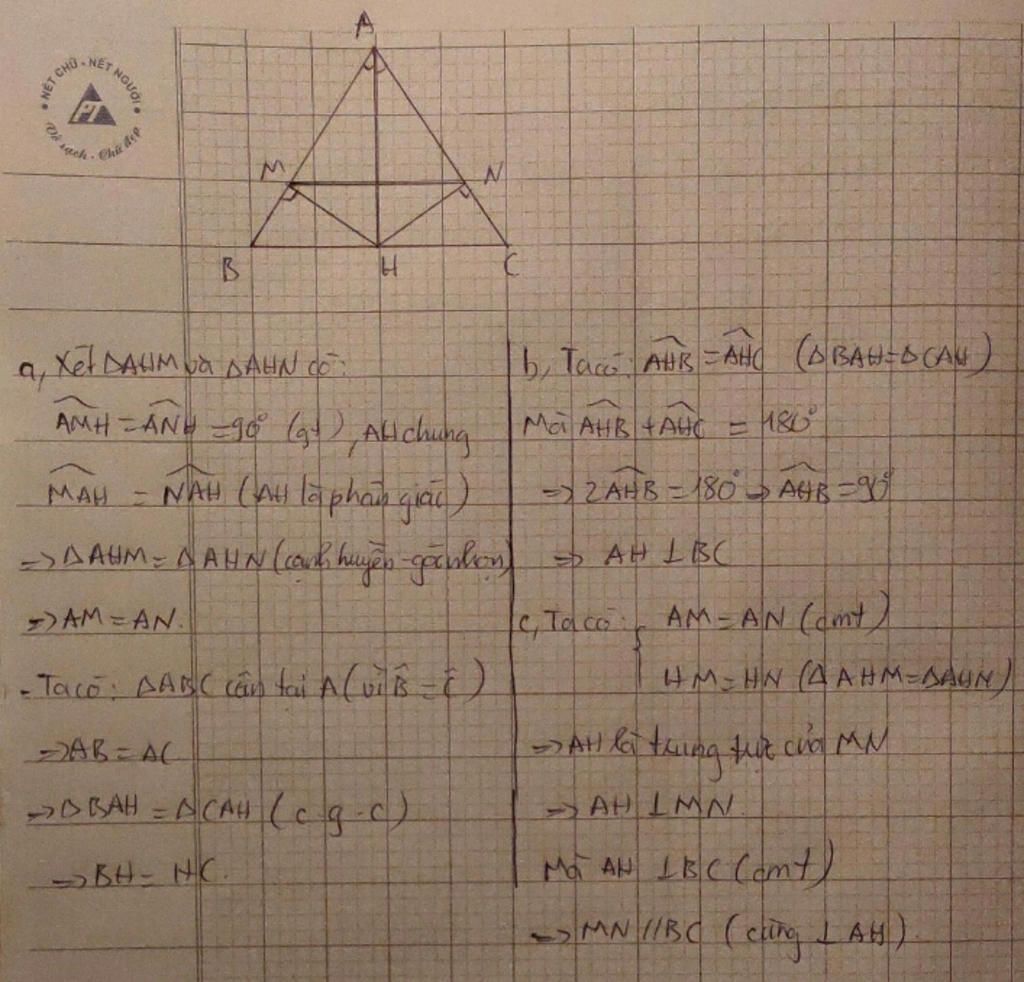 NÉT CHỮ - NẾT NGƯỜI
PT
Vở sạch - Chữ đẹp
A
M
N
B
H
C
a, Xét ΔAHM và ΔAHN có:
$\widehat{AMH}$ = $\widehat{ANH}$ = 90° (gt), AH chung
$\widehat{MAH}$ = $\widehat{NAH}$ (AH là phân giác)
=> ΔAHM = ΔAHN (cạnh huyền - góc nhọn)
=> AM = AN.
- Ta có: ΔABC cân tại A (vì $\widehat{B}$ = $\widehat{C}$)
=> AB = AC
=> ΔBAH = ΔCAH (c.g.c)
=> BH = HC.
b, Ta có: $\widehat{AHB}$ = $\widehat{AHC}$ (ΔBAH = ΔCAH)
Mà $\widehat{AHB}$ + $\widehat{AHC}$ = 180°
=> 2$\widehat{AHB}$ = 180° => $\widehat{AHB}$ = 90°
=> AH ⊥ BC
c, Ta có: { AM = AN (cmt)
HM = HN (ΔAHM = ΔAHN)
=> AH là trung trực của MN
=> AH ⊥ MN.
Mà AH ⊥ BC (cmt)
=> MN // BC (cùng ⊥ AH).